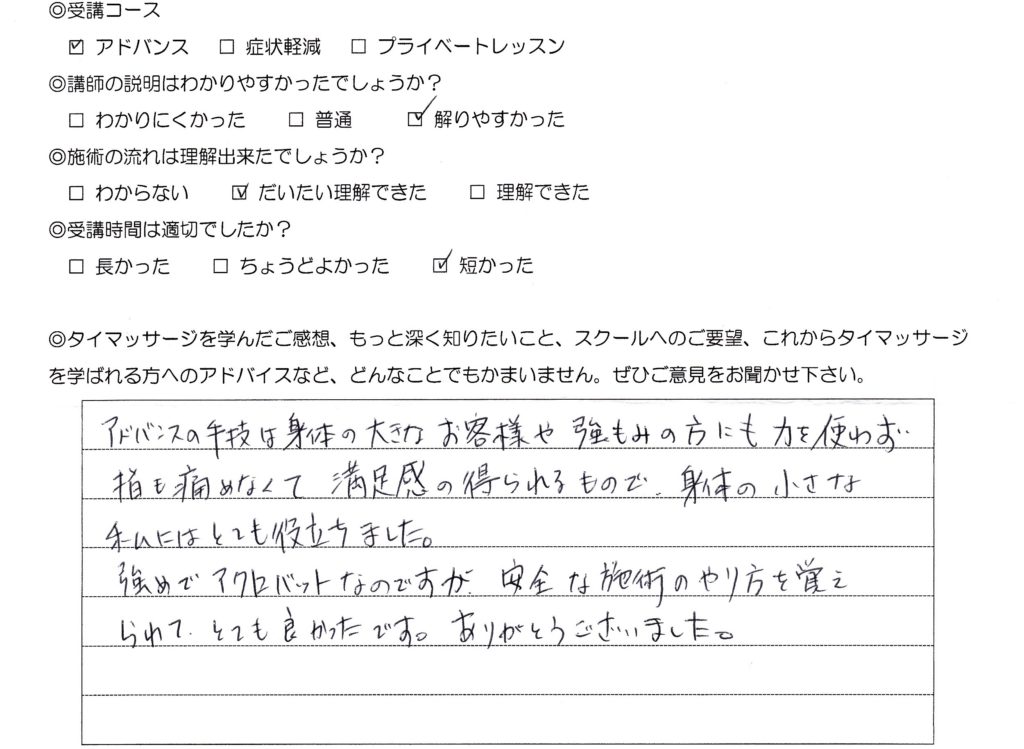 ◎受講コース
☑ アドバンス □ 症状軽減 □ プライベートレッスン
◎講師の説明はわかりやすかったでしょうか？
□ わかりにくかった □ 普通 ☑ 解りやすかった
◎施術の流れは理解出来たでしょうか？
□ わからない ☑ だいたい理解できた □ 理解できた
◎受講時間は適切でしたか？
□ 長かった □ ちょうどよかった ☑ 短かった
◎タイマッサージを学んだご感想、もっと深く知りたいこと、スクールへのご要望、これからタイマッサージ
を学ばれる方へのアドバイスなど、どんなことでもかまいません。ぜひご意見をお聞かせ下さい。
アドバンスの手技は身体の大きなお客様や強もみの方にも力を使わず
指も痛めなくて満足感の得られるもので、身体の小さな
私にはとても役立ちました。
強めでアクロバットなのですが、安全な施術のやり方を覚え
られて、とても良かったです。ありがとうございました。